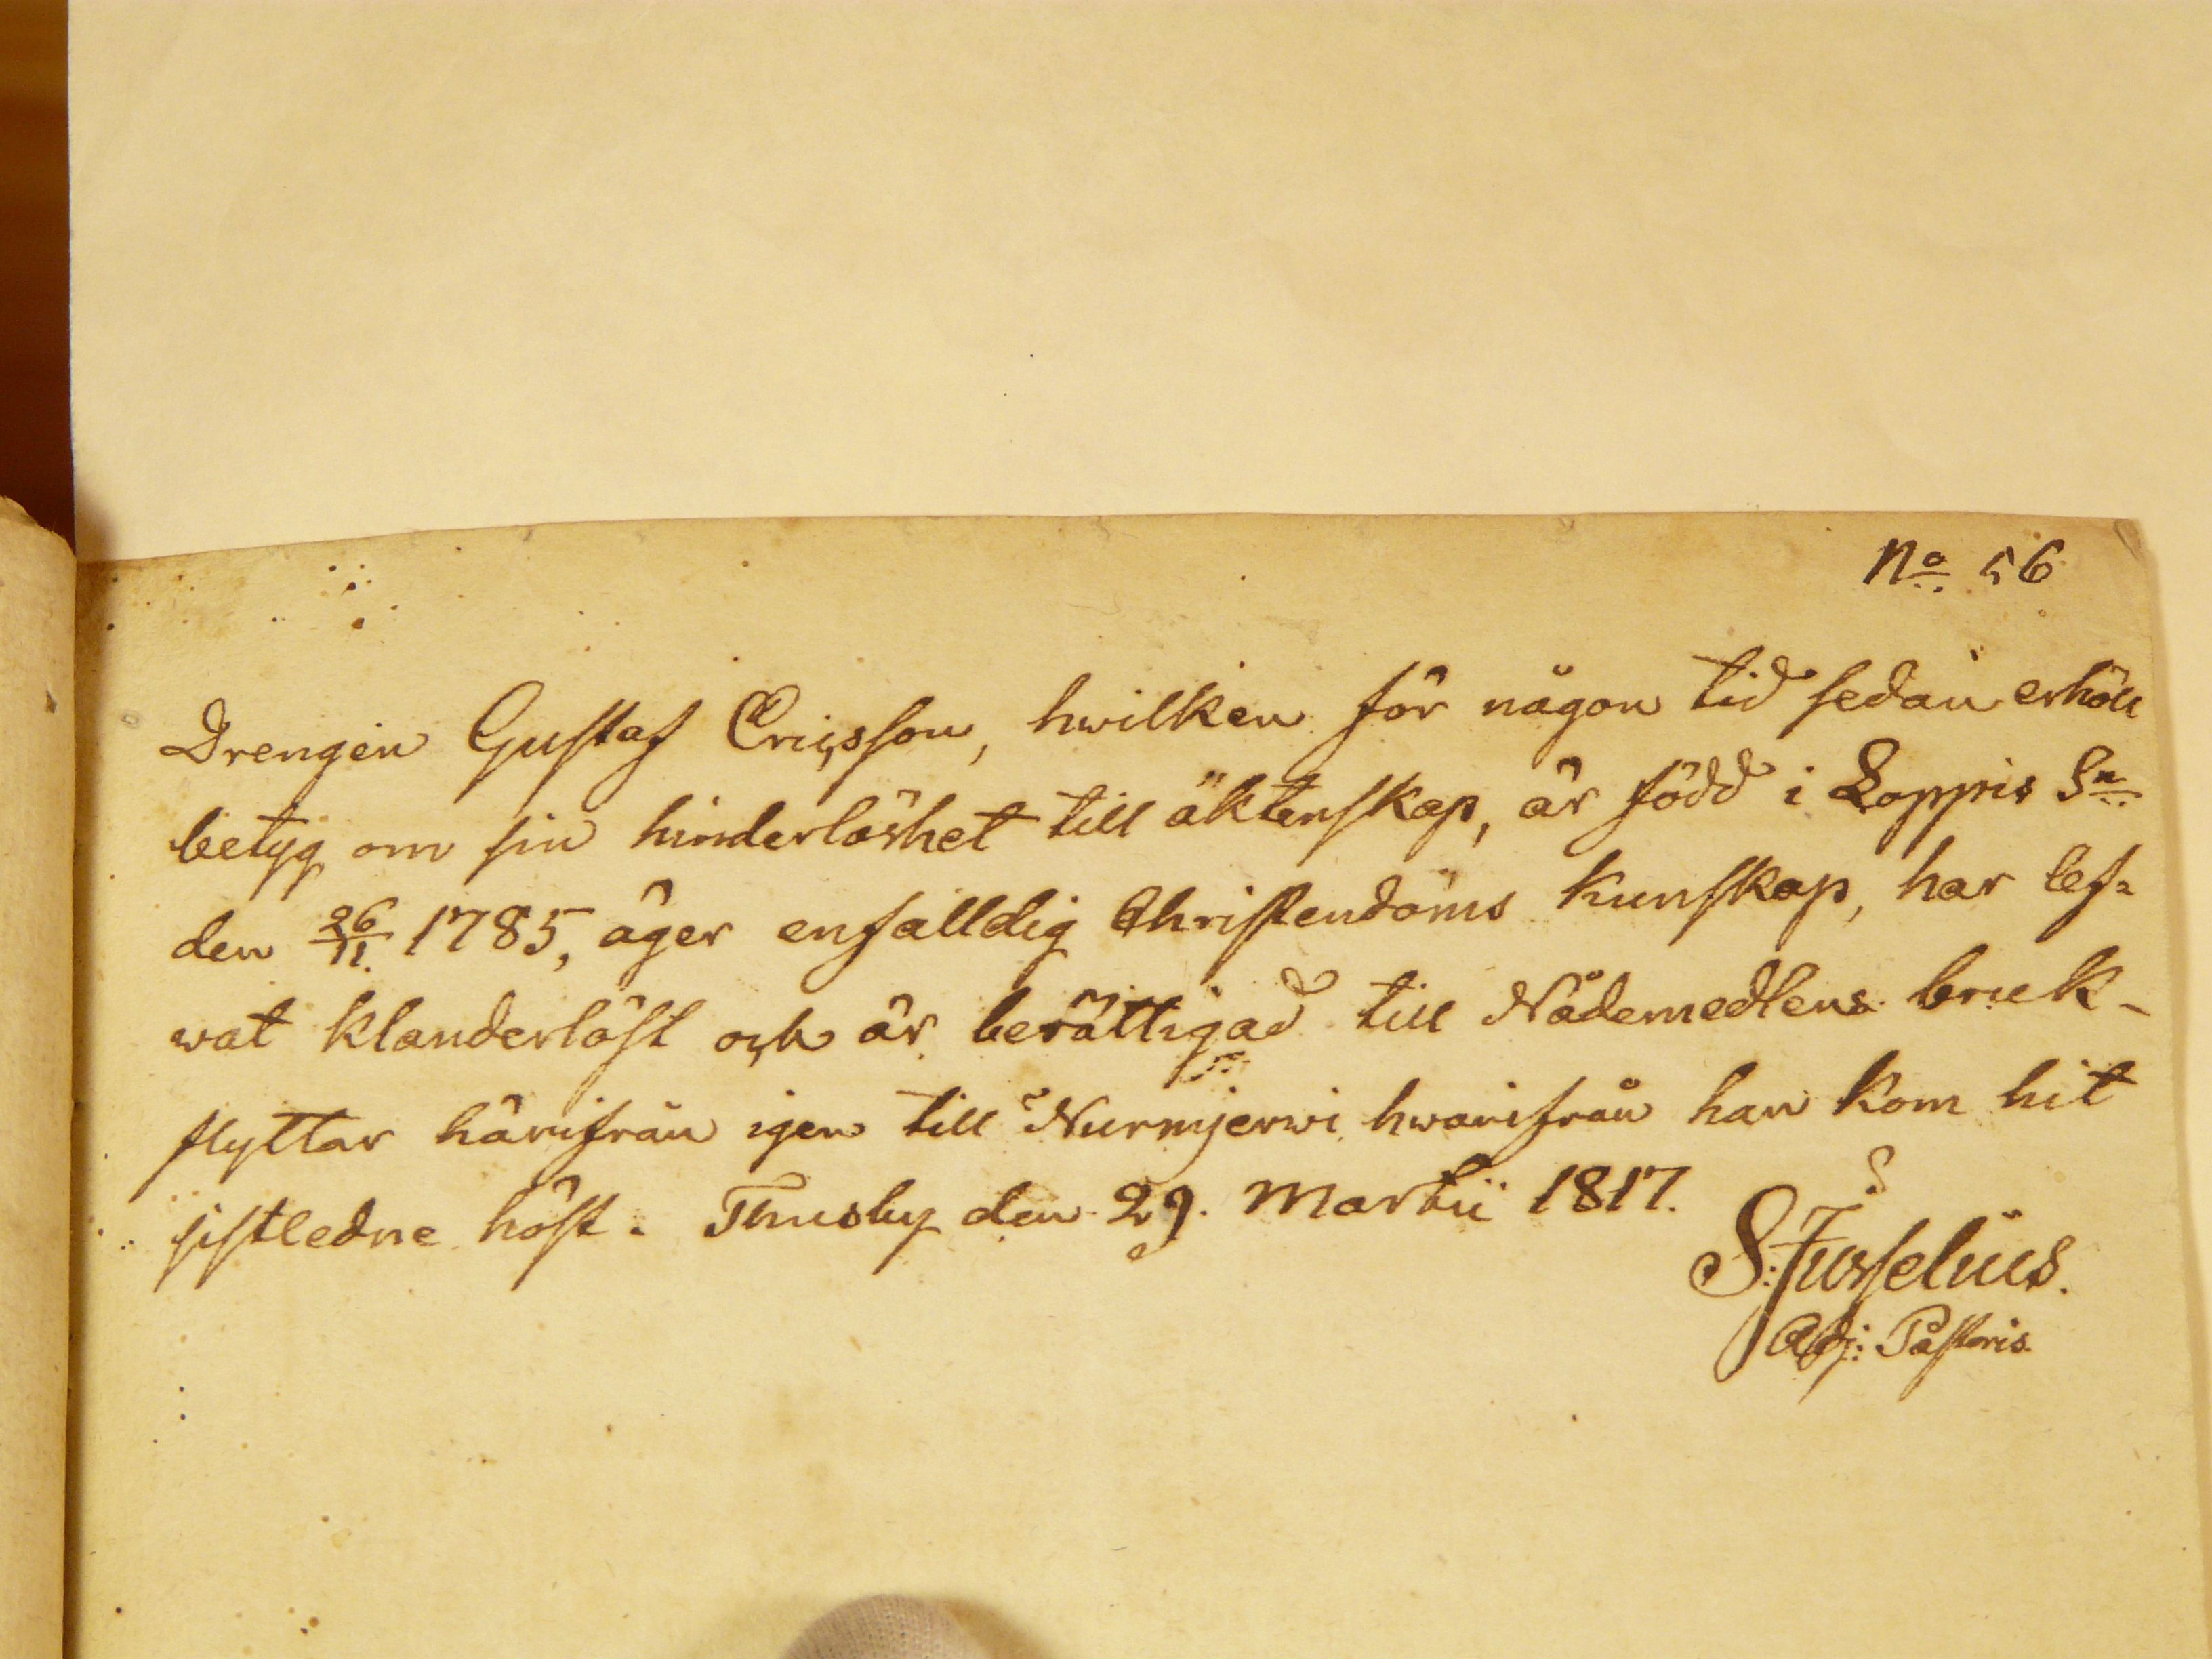 No 56
Drengen Gustaf Ericsson, hwilken för någon tid sedan erhöll
betyg om sin hinderlöshet till äktenskap, är född i Loppis Sn
den 26/11 1785, äger enfalldig Christendoms kunskap, har lef-
wat klanderlöst och är berättigad till Nådemedlens bruk -
flyttar härifrån igen till Nurmjerwi hwarifrån han kom hit
sistledne höst. Thusby den 29. Martii 1817.
S: Juselius.
Adj: Pastoris.